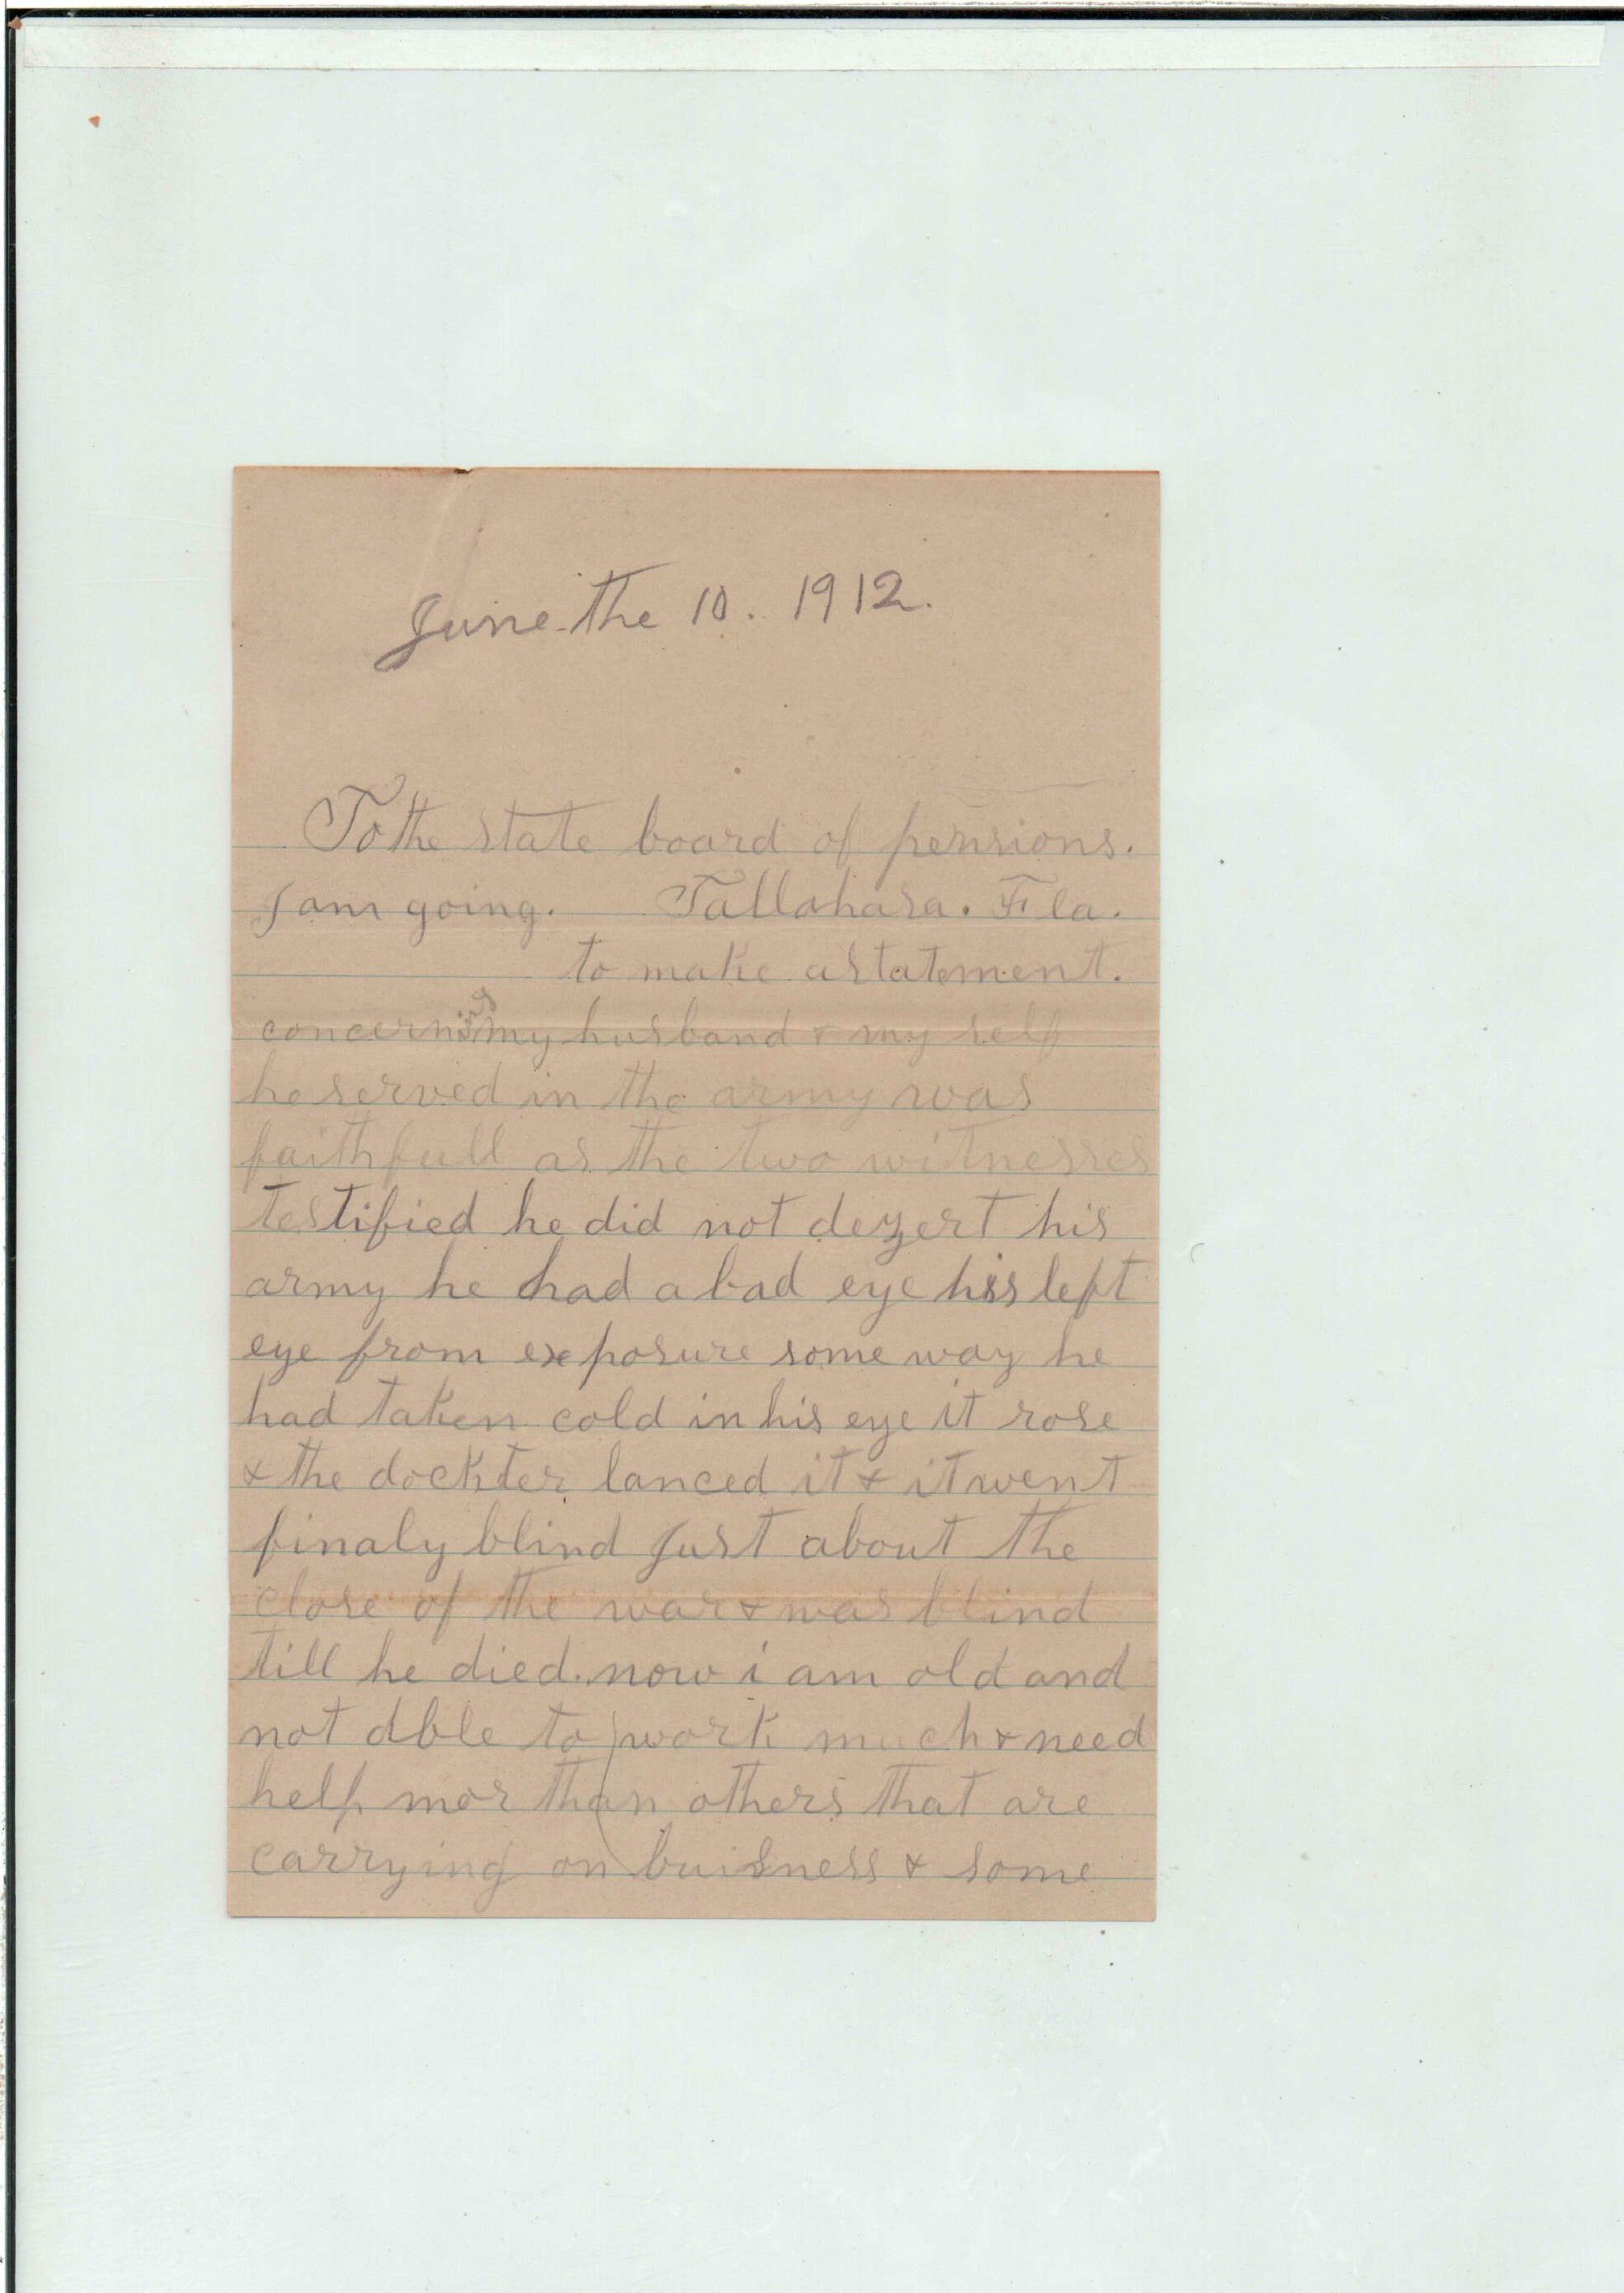 June the 10. 1912.
To the state board of pensions.
I am going. Tallahasa. Fla.
to make a statement.
concerning my husband & my self
he served in the army was
faithfull as the two witnesses
testified he did not dezert his
army he had a bad eye his left
eye from exposure some way he
had taken cold in his eye it rose
& the dockter lanced it & it went
finaly blind Just about the
close of the war & was blind
till he died. now i am old and
not able to work much & need
help mor than others that are
carrying on buisness & some